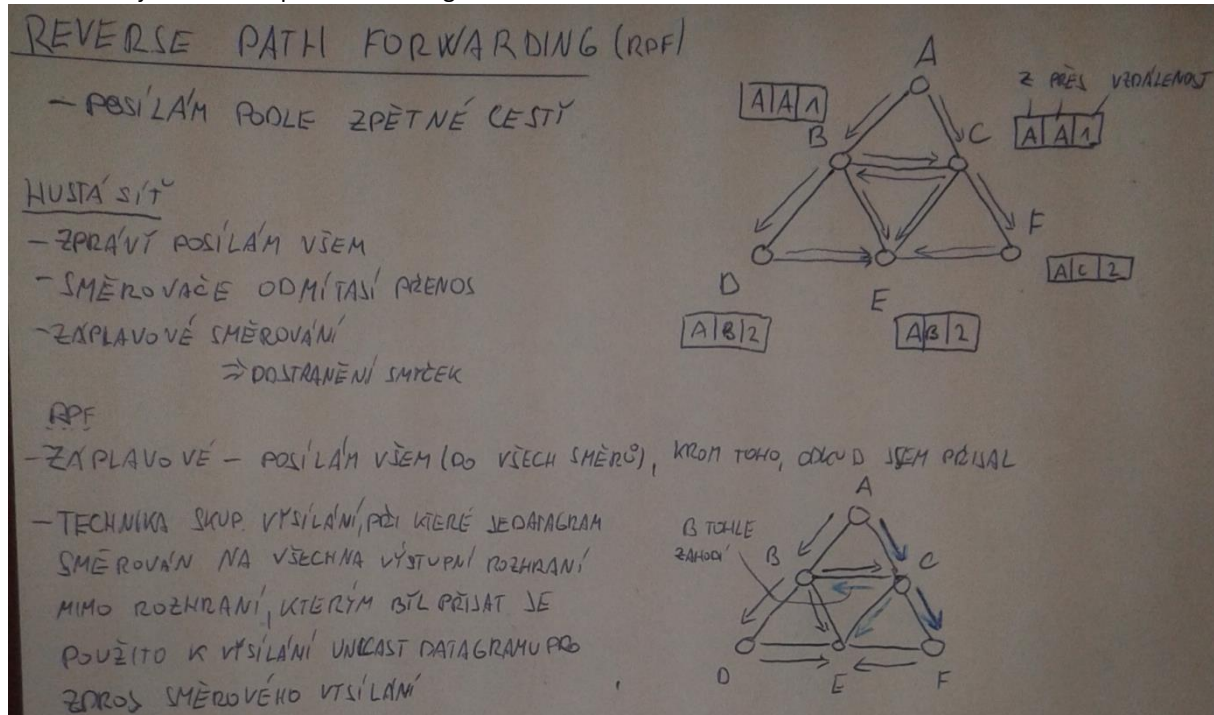 REVERSE PATH FORWARDING (RPF)
- POSÍLÁM PODLE ZPĚTNÉ CESTY
HUSTÁ SÍŤ
- ZPRÁVY POSÍLÁM VŠEM
- SMĚROVAČE ODMÍTAJÍ PŘENOS
- ZÁPLAVOVÉ SMĚROVÁNÍ
⇒ DOSTRANĚNÍ SMYČEK
A
Z PŘES VZDÁLENOST
A|A|1
A|A|1
B
C
F
A|C|2
D
E
A|B|2
A|B|2
RPF
- ZÁPLAVOVÉ - POSÍLÁM VŠEM (DO VŠECH SMĚRŮ), KROM TOHO, ODKUD JSEM PŘIJAL
- TECHNIKA SKUP. VYSÍLÁNÍ, PŘI KTERÉ JE DATAGRAM
SMĚROVÁN NA VŠECHNA VÝSTUPNÍ ROZHRANÍ
MIMO ROZHRANÍ, KTERÝM BYL PŘIJAT JE
POUŽITO K VYSÍLÁNÍ UNICAST DATAGRAMU PRO
ZDROJ SMĚROVÉHO VYSÍLÁNÍ
A
B TOHLE
ZAHODÍ
B
C
D
E
F